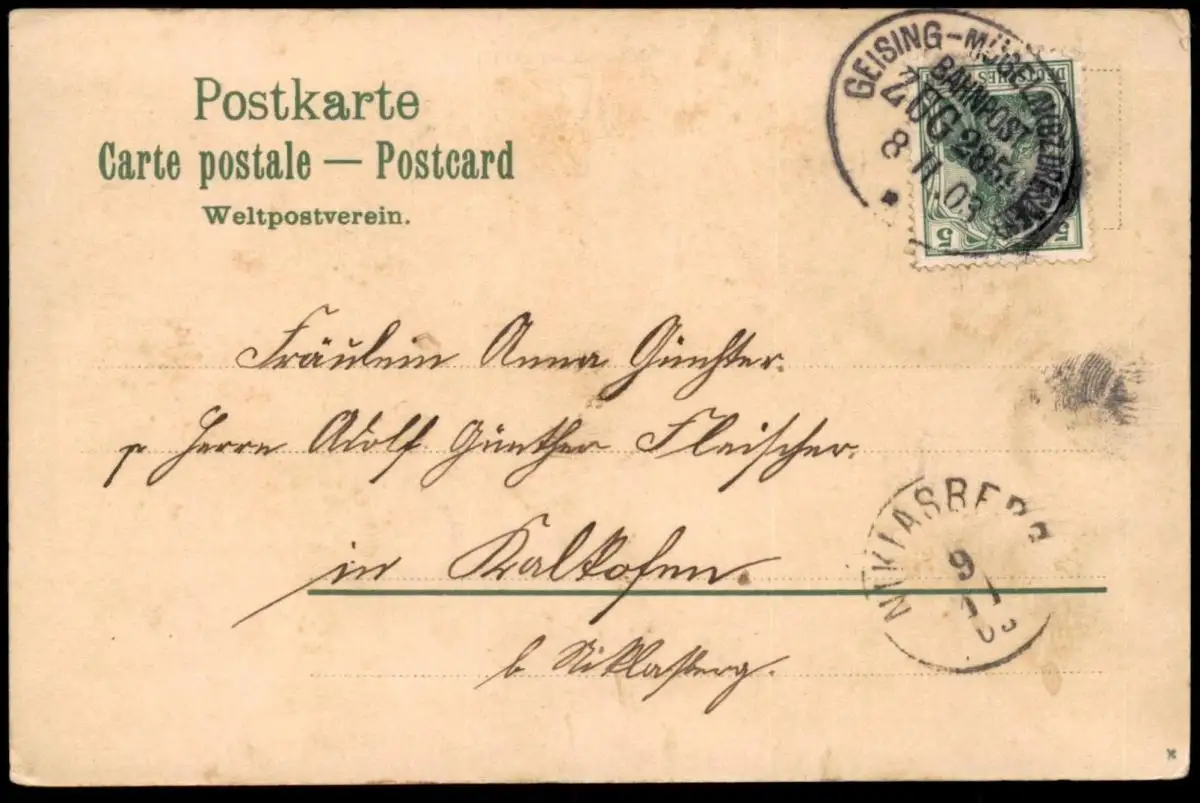 Postkarte
Carte postale — Postcard
Weltpostverein.
GEISING-MÜGELN
BAHNPOST
ZUG 2859
8 11 03
DEUTSCHES
5 5
Fräulein Anna Günther.
p Herrn Adolf Günther Fleischer.
in Kalkofen.
b Niklasberg.
NIKLASBERG
9
03